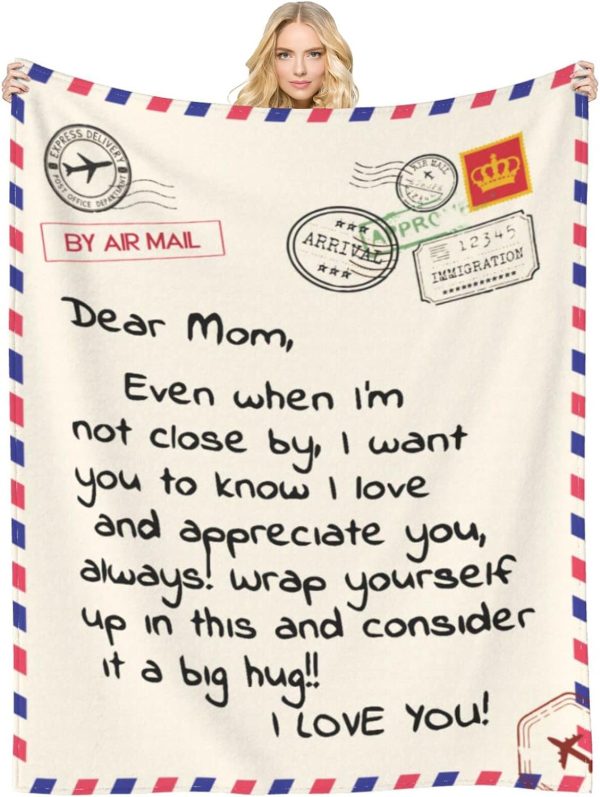 EXPRESS DELIVERY
POST OFFICE DEPARTMENT
BY AIR MAIL
AIR MAIL
APPRO
ARRIVAL
12345
IMMIGRATION
Dear Mom,
Even when I'm
not close by, I want
you to know I love
and appreciate you,
always! wrap yourself
up in this and consider
it a big hug!!
I LOVE YOU!